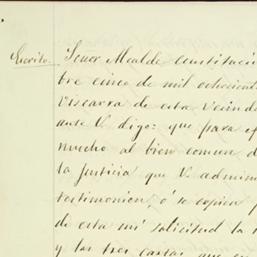 Escrito. Señor Alcalde Constituci
bre cinco de mil ochocient
Viscarra de esta Vecind
ante V. digo: que para ef
mucho al bien comun d
la Justicia que V. admin
testimonien, ó se copien p
de esta mi solicitud la
y las tres cartas que